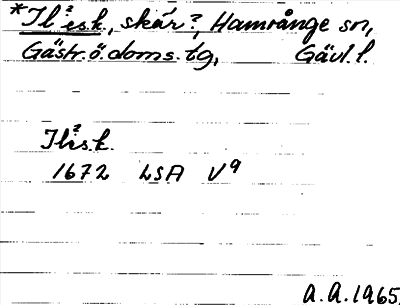 *Il?esk., skär?, Hamrånge sn,
Gästr. ö. doms. tg, Gävl. l.
Il?esk.
1672 LSA V9
A.A. 1965.